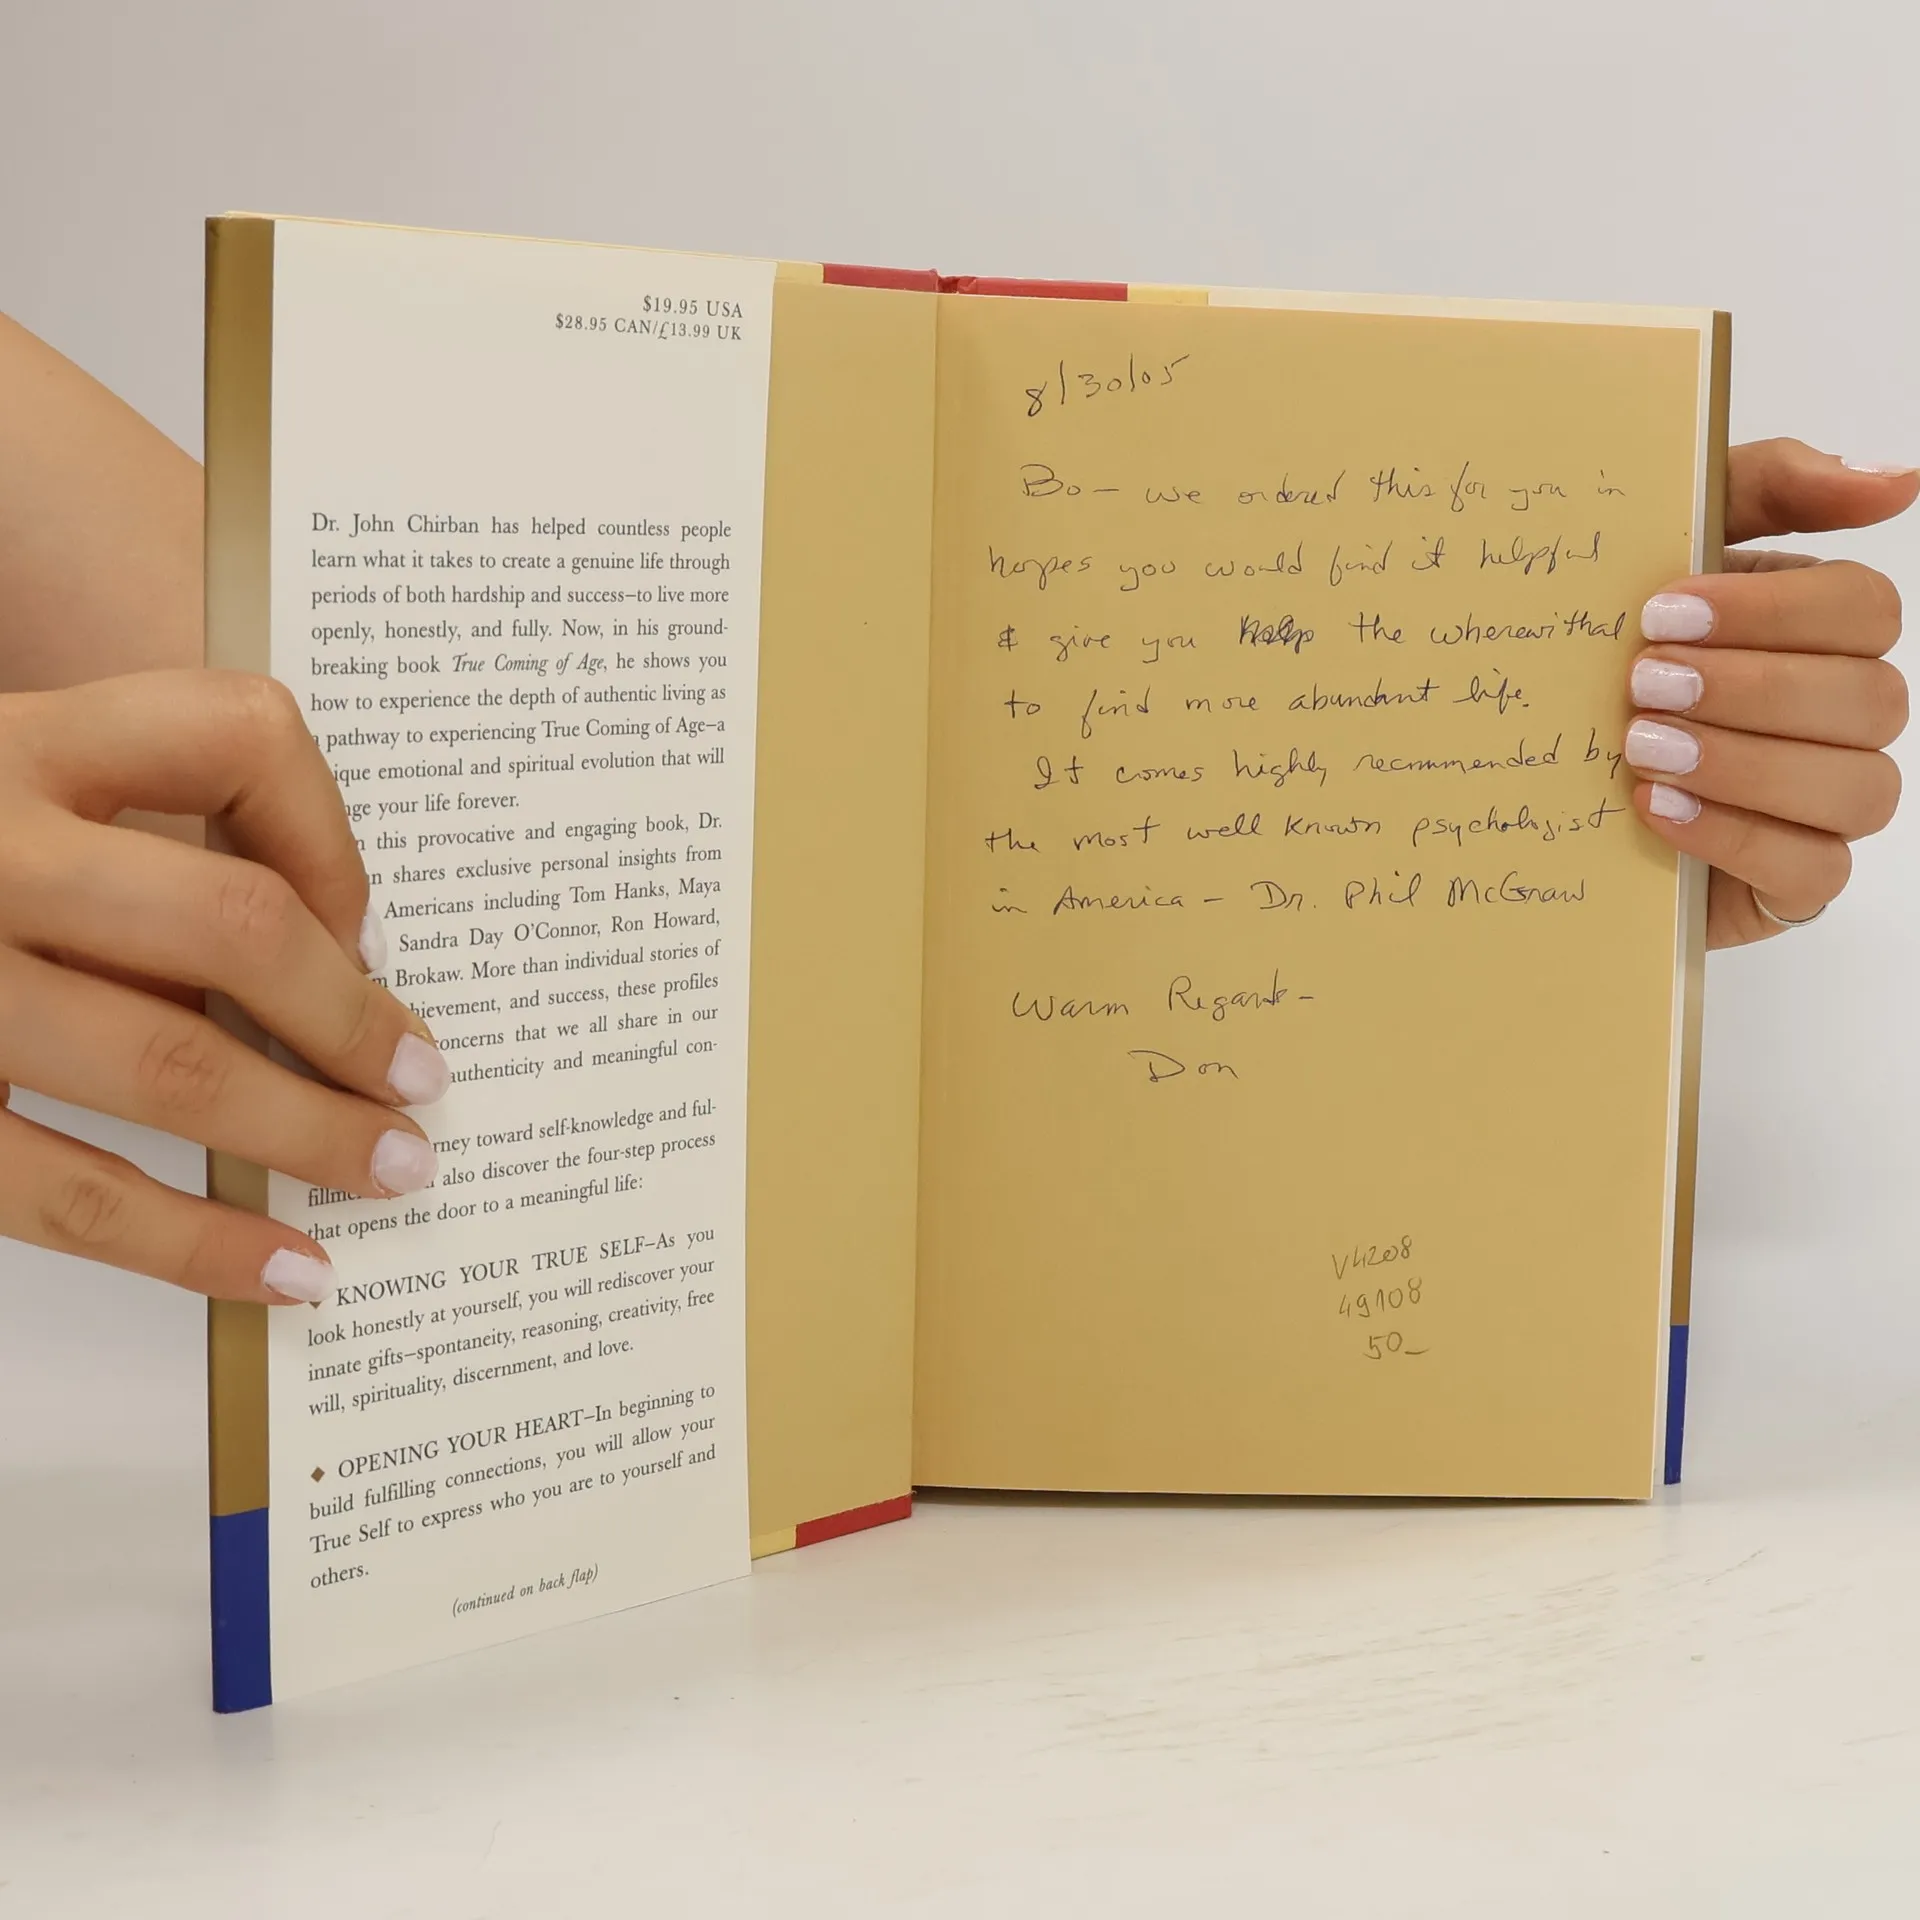 $19.95 USA
$28.95 CAN/£13.99 UK
Dr. John Chirban has helped countless people
learn what it takes to create a genuine life through
periods of both hardship and success–to live more
openly, honestly, and fully. Now, in his ground-
breaking book True Coming of Age, he shows you
how to experience the depth of authentic living as
a pathway to experiencing True Coming of Age–a
ique emotional and spiritual evolution that will
nge your life forever.
n this provocative and engaging book, Dr.
n shares exclusive personal insights from
Americans including Tom Hanks, Maya
Sandra Day O'Connor, Ron Howard,
m Brokaw. More than individual stories of
hievement, and success, these profiles
concerns that we all share in our
authenticity and meaningful con-
rney toward self-knowledge and ful-
fillme also discover the four-step process
that opens the door to a meaningful life:
◆ KNOWING YOUR TRUE SELF–As you
look honestly at yourself, you will rediscover your
innate gifts–spontaneity, reasoning, creativity, free
will, spirituality, discernment, and love.
◆ OPENING YOUR HEART–In beginning to
build fulfilling connections, you will allow your
True Self to express who you are to yourself and
others.
(continued on back flap)
8/30/05
Bo – we ordered this for you in
hopes you would find it helpful
& give you the wherewithal
to find more abundant life.
It comes highly recommended by
the most well known psychologist
in America – Dr. Phil McGraw
Warm Regards –
Don
V4208
49108
50_